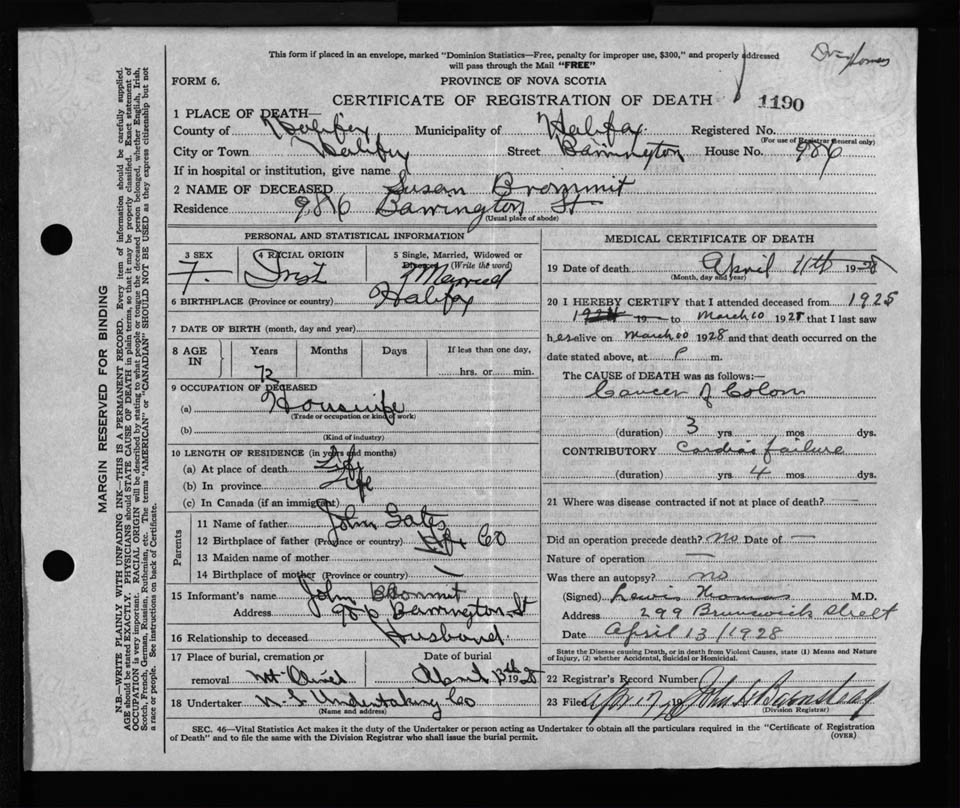 This form if placed in an envelope, marked "Dominion Statistics—Free, penalty for improper use, $300," and properly addressed
will pass through the Mail "FREE"
FORM 6.
PROVINCE OF NOVA SCOTIA
CERTIFICATE OF REGISTRATION OF DEATH
1190
1 PLACE OF DEATH—
County of Halifax Municipality of Halifax Registered No.
(For use of Registrar General only)
City or Town Halifax Street Barrington House No. 986
If in hospital or institution, give name
2 NAME OF DECEASED Susan Brommit
Residence 986 Barrington St
(Usual place of abode)
PERSONAL AND STATISTICAL INFORMATION
3 SEX 4 RACIAL ORIGIN 5 Single, Married, Widowed or
Divorced (Write the word)
F. Irish Married
6 BIRTHPLACE (Province or country) Halifax
7 DATE OF BIRTH (month, day and year)
8 AGE IN Years Months Days If less than one day,
hrs. or min.
72
9 OCCUPATION OF DECEASED
(a) Housewife
(Trade or occupation or kind of work)
(b)
(Kind of industry)
10 LENGTH OF RESIDENCE (in years and months)
(a) At place of death Life
(b) In province Life
(c) In Canada (if an immigrant)
Parents
11 Name of father John Gates
12 Birthplace of father (Province or country) Hfx Co
13 Maiden name of mother
14 Birthplace of mother (Province or country) —
15 Informant's name John Brommit
Address 986 Barrington St
16 Relationship to deceased Husband.
17 Place of burial, cremation or Date of burial
removal Mt Olivet April 13th 1928
18 Undertaker N. S Undertaking Co
(Name and address)
MEDICAL CERTIFICATE OF DEATH
19 Date of death April 11th 1928
(Month, day and year)
20 I HEREBY CERTIFY that I attended deceased from 1925
19 to March 00 1928 that I last saw
her alive on March 00 1928 and that death occurred on the
date stated above, at P m.
The CAUSE of DEATH was as follows:—
Cancer of Colon
(duration) 3 yrs mos dys.
CONTRIBUTORY Cardiac failure
(duration) yrs 4 mos. dys.
21 Where was disease contracted if not at place of death? —
Did an operation precede death? no Date of —
Nature of operation —
Was there an autopsy? no
(Signed) Lewis Thomas M.D.
Address 299 Brunswick Street
Date April 13/1928
State the Disease causing Death, or in death from Violent Causes, state (1) Means and Nature
of Injury, (2) whether Accidental, Suicidal or Homicidal.
22 Registrar's Record Number
23 Filed Apr 17 1928 John H Barnstead
(Division Registrar)
SEC. 46—Vital Statistics Act makes it the duty of the Undertaker or person acting as Undertaker to obtain all the particulars required in the "Certificate of Registration
of Death" and to file the same with the Division Registrar who shall issue the burial permit.
(OVER)
MARGIN RESERVED FOR BINDING
N.B.—WRITE PLAINLY WITH UNFADING INK—THIS IS A PERMANENT RECORD. Every item of information should be carefully supplied.
AGE should be stated EXACTLY. PHYSICIANS should STATE CAUSE OF DEATH in plain terms, so that it may be properly classified. Exact statement of
OCCUPATION is very important. RACIAL ORIGIN will be described by stating to what people or tongue the deceased person belonged, whether English, Irish,
Scotch, French, German, Russian, Ruthenian, etc. The terms "AMERICAN" or "CANADIAN" SHOULD NOT BE USED as they express citizenship but not
a race or people. See instructions on back of Certificate.